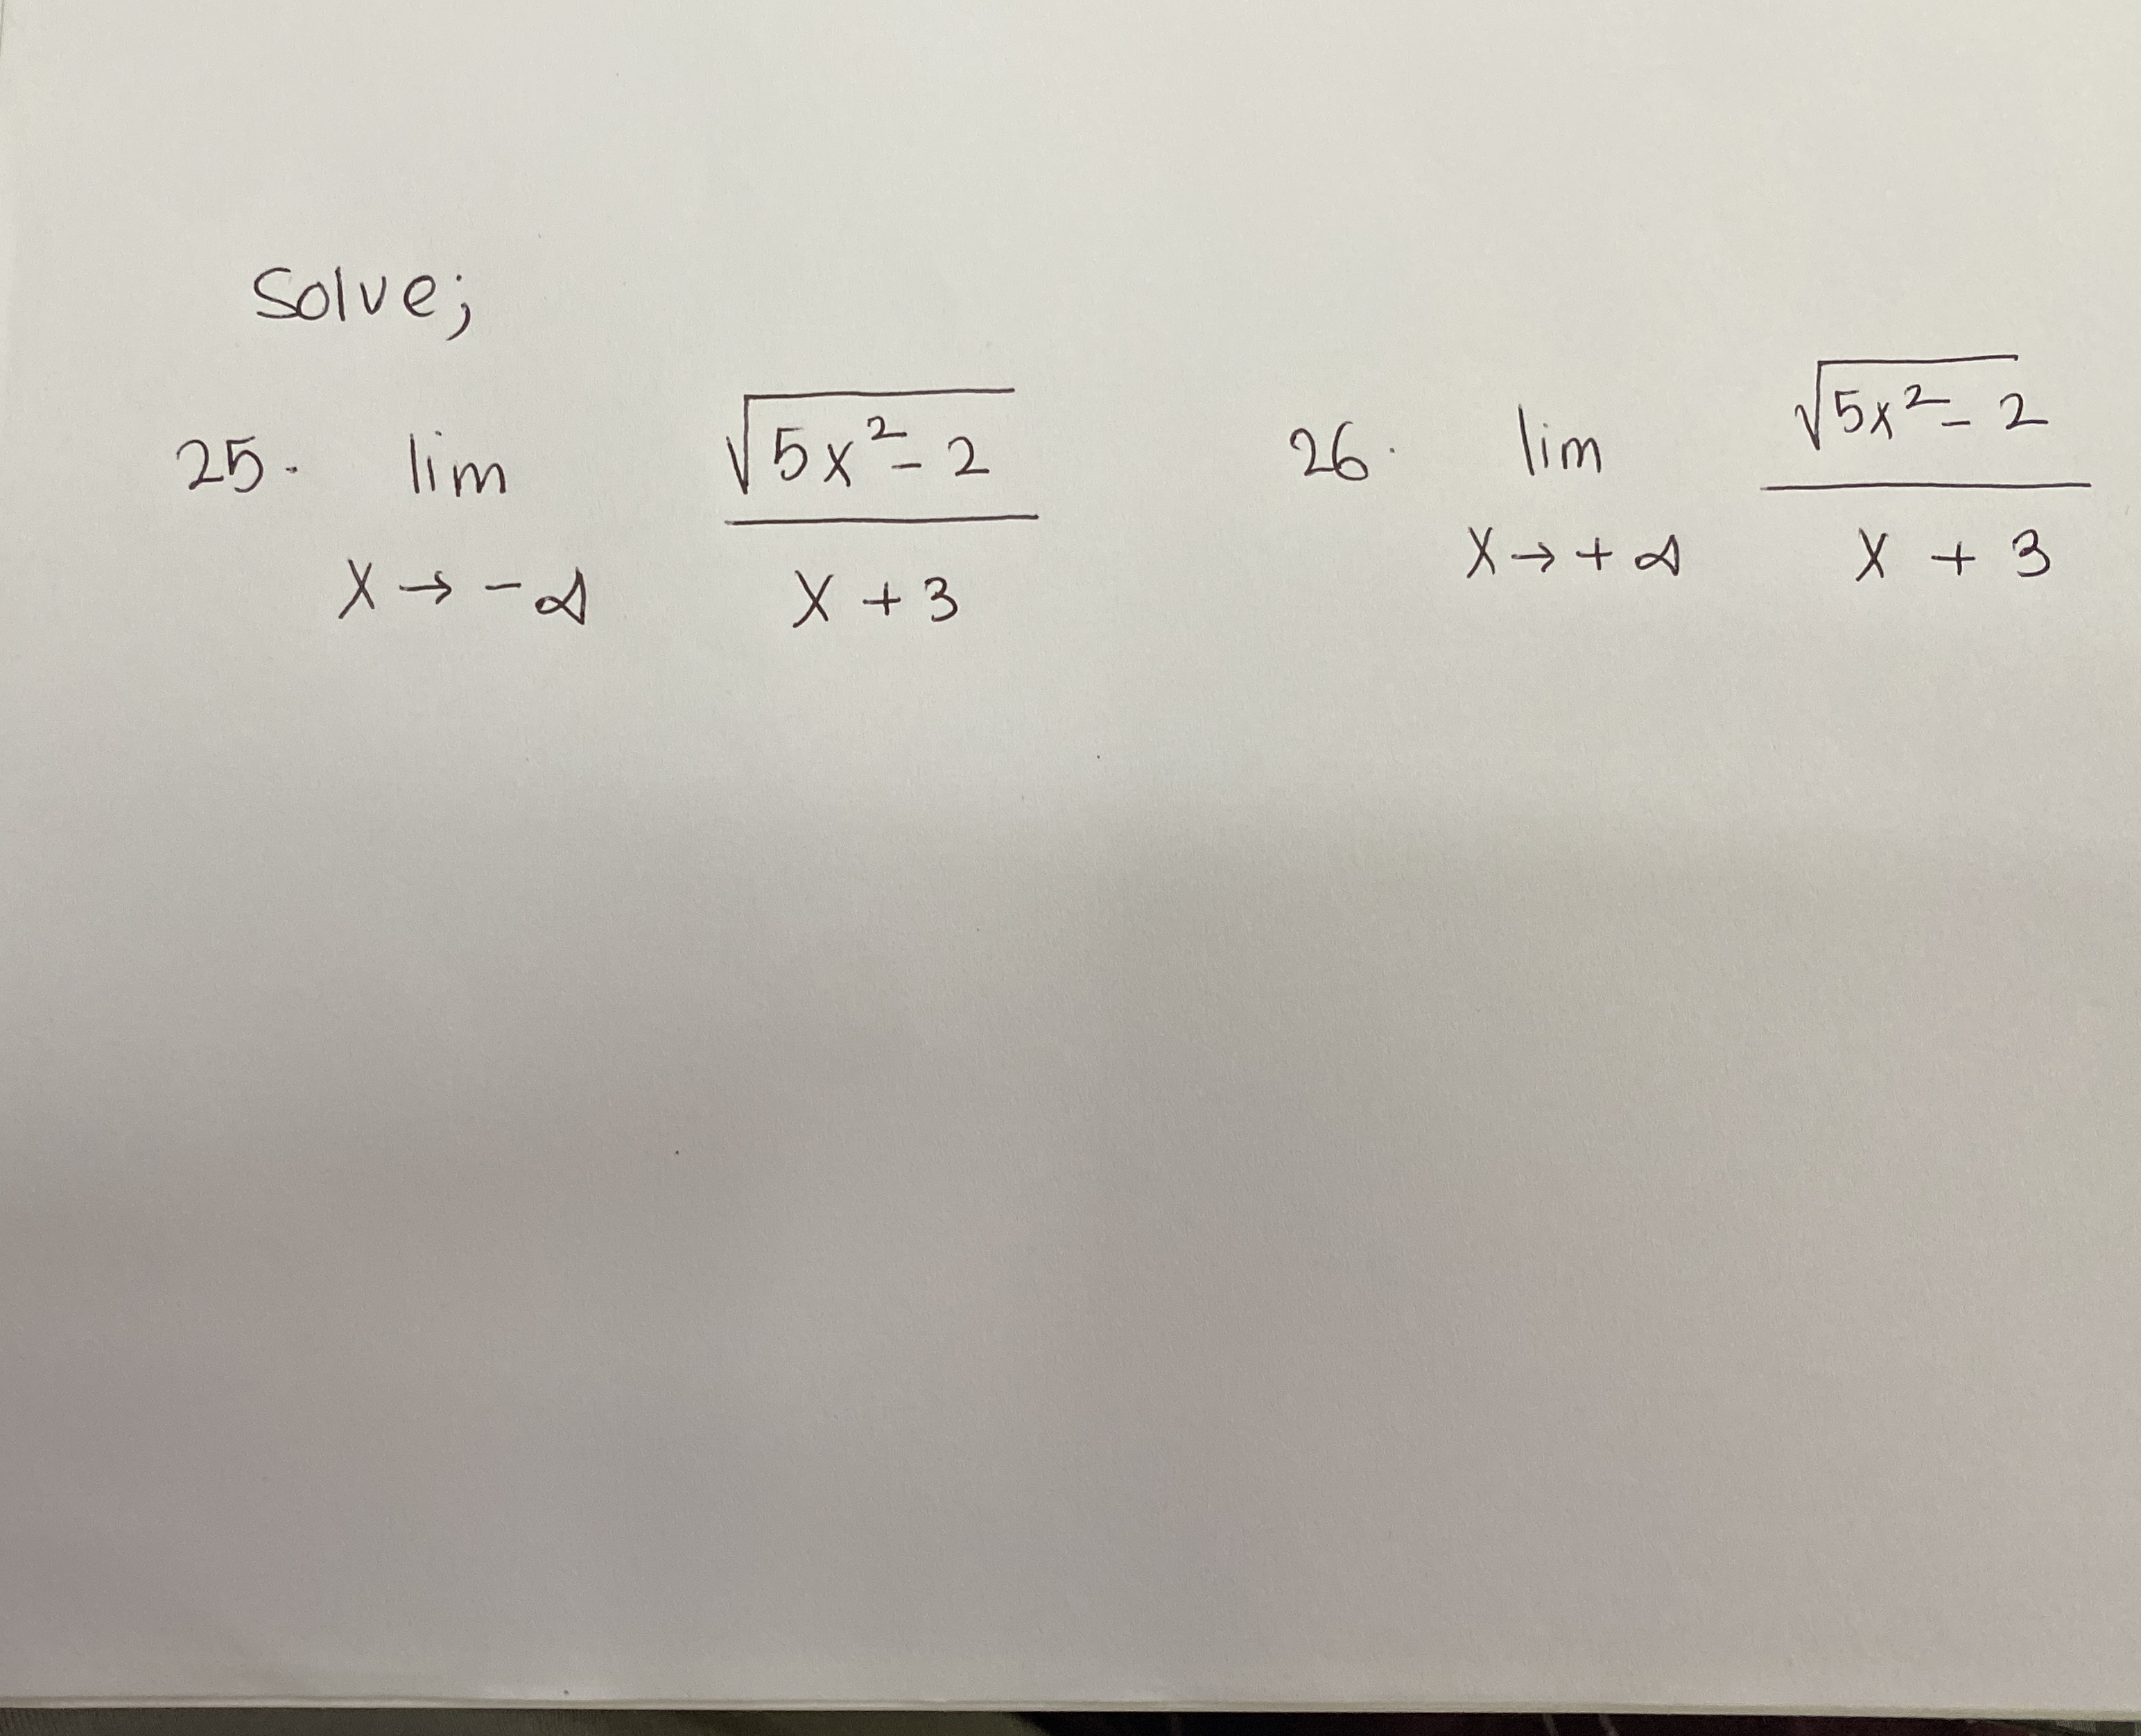 Solve;
25. lim x→-∞ √(5x²-2) / (x+3)
26. lim x→+∞ √(5x²-2) / (x+3)